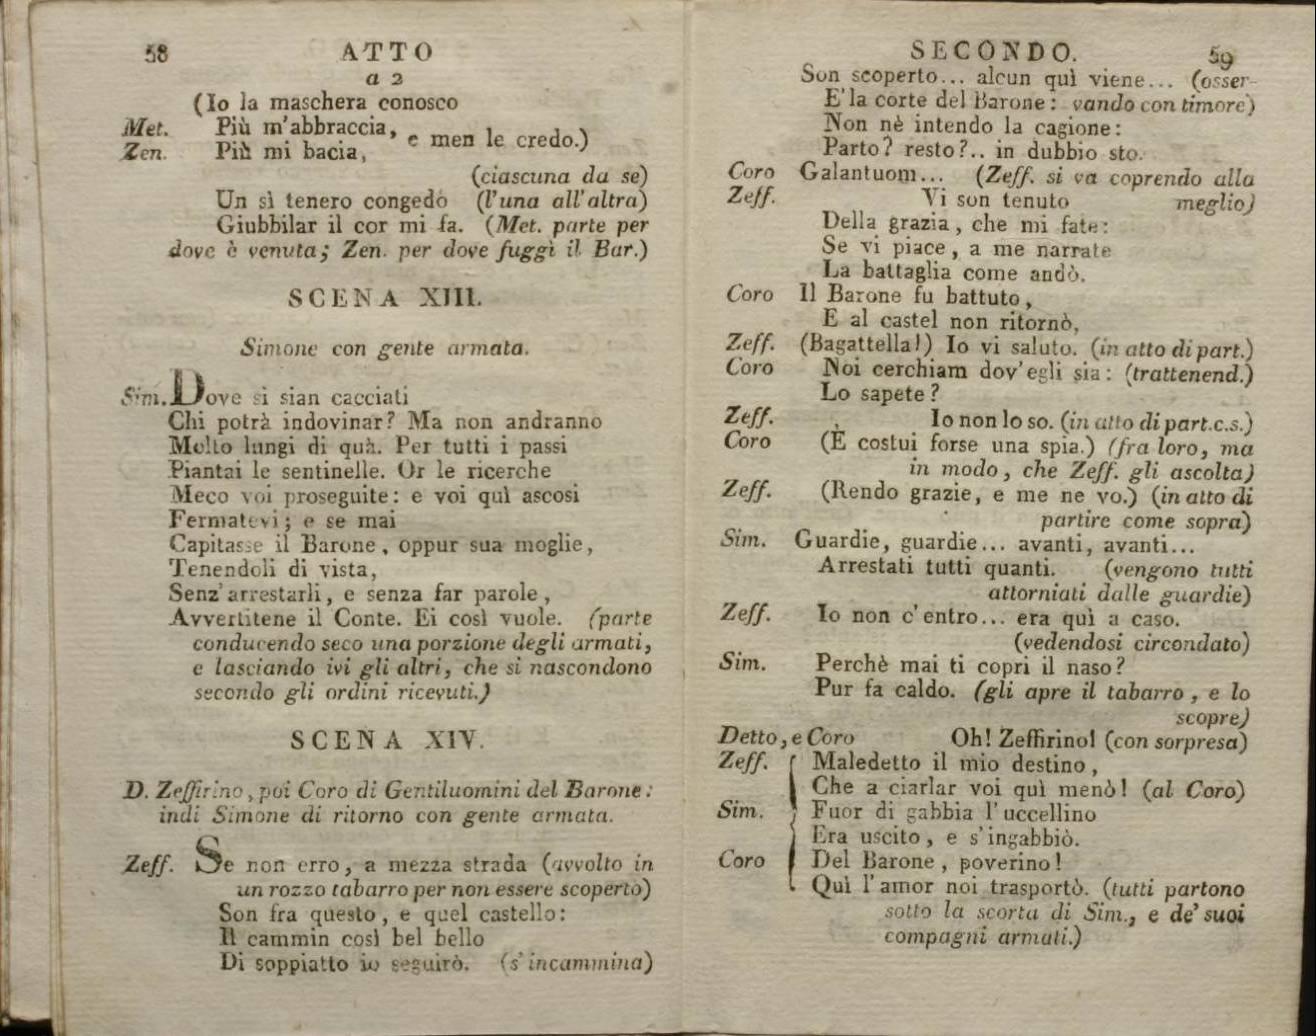 58 ATTO
a 2
(Io la maschera conosco
Met. Più m'abbraccia,
e men le credo.)
Zen. Più mi bacia,
(ciascuna da se)
Un sì tenero congedo (l'una all'altra)
Giubbilar il cor mi fa. (Met. parte per
dove è venuta; Zen. per dove fuggì il Bar.)
SCENA XIII.
Simone con gente armata.
Sim. Dove si sian cacciati
Chi potrà indovinar? Ma non andranno
Molto lungi di quà. Per tutti i passi
Piantai le sentinelle. Or le ricerche
Meco voi proseguite: e voi quì ascosi
Fermatevi; e se mai
Capitasse il Barone, oppur sua moglie,
Tenendoli di vista,
Senz'arrestarli, e senza far parole,
Avvertitene il Conte. Ei così vuole. (parte
conducendo seco una porzione degli armati,
e lasciando ivi gli altri, che si nascondono
secondo gli ordini ricevuti.)
SCENA XIV.
D. Zeffirino, poi Coro di Gentiluomini del Barone:
indi Simone di ritorno con gente armata.
Zeff. Se non erro, a mezza strada (avvolto in
un rozzo tabarro per non essere scoperto)
Son fra questo, e quel castello:
Il cammin così bel bello
Di soppiatto io seguirò. (s'incammina)
SECONDO. 59
Son scoperto... alcun quì viene... (osser-
E' la corte del Barone: vando con timore)
Non nè intendo la cagione:
Parto? resto?.. in dubbio sto.
Coro Galantuom... (Zeff. si va coprendo alla
Zeff. Vi son tenuto meglio)
Della grazia, che mi fate:
Se vi piace, a me narrate
La battaglia come andò.
Coro Il Barone fu battuto,
E al castel non ritornò,
Zeff. (Bagattella!) Io vi saluto. (in atto di part.)
Coro Noi cerchiam dov'egli sia: (trattenend.)
Lo sapete?
Zeff. Io non lo so. (in atto di part. c.s.)
Coro (È costui forse una spia.) (fra loro, ma
in modo, che Zeff. gli ascolta)
Zeff. (Rendo grazie, e me ne vo.) (in atto di
partire come sopra)
Sim. Guardie, guardie... avanti, avanti...
Arrestati tutti quanti. (vengono tutti
attorniati dalle guardie)
Zeff. Io non c'entro... era quì a caso.
(vedendosi circondato)
Sim. Perchè mai ti copri il naso?
Pur fa caldo. (gli apre il tabarro, e lo
scopre)
Detto, e Coro Oh! Zeffirino! (con sorpresa)
Zeff. Maledetto il mio destino,
Che a ciarlar voi quì menò! (al Coro)
Sim. Fuor di gabbia l'uccellino
Era uscito, e s'ingabbiò.
Coro Del Barone, poverino!
Quì l'amor noi trasportò. (tutti partono
sotto la scorta di Sim., e de' suoi
compagni armati.)